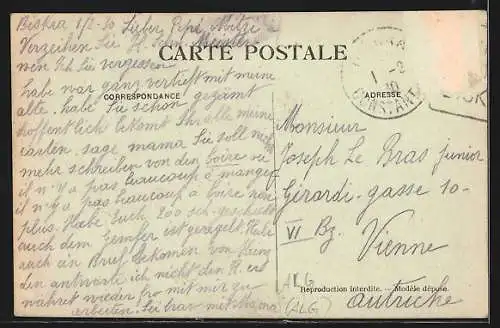 Biskra 1/2-30 Lieber Pepi
Verzeihen Sie
wen Ich Sie vergessen
habe war ganz vertieft mit meine
alte. habe Sie schon gezämt
hoffentlich bekomt Ihr alle meine
carten. sage mama Sie soll nicht
mehr schreiben von den boire
il n'y a pas beaucoup à manger
il n'y a pas beaucoup à boire non
plus. Habe Euch 200 sch. geschickt
auch dem geregelt. Habe
auch ein Brief bekomen von
den antworte ich nicht den H. er
währet wieder fro mit mir zu
arbeiten. Sei brav mit Mama
CARTE POSTALE
CORRESPONDANCE
ADRESSE
1 -2
30
CONSTANT
Monsieur
Joseph Le Bras junior
Girardi-gasse 10-
VI Bz. Vienne
ALG
(ALG)
Reproduction interdite. — Modèle déposé.
autriche